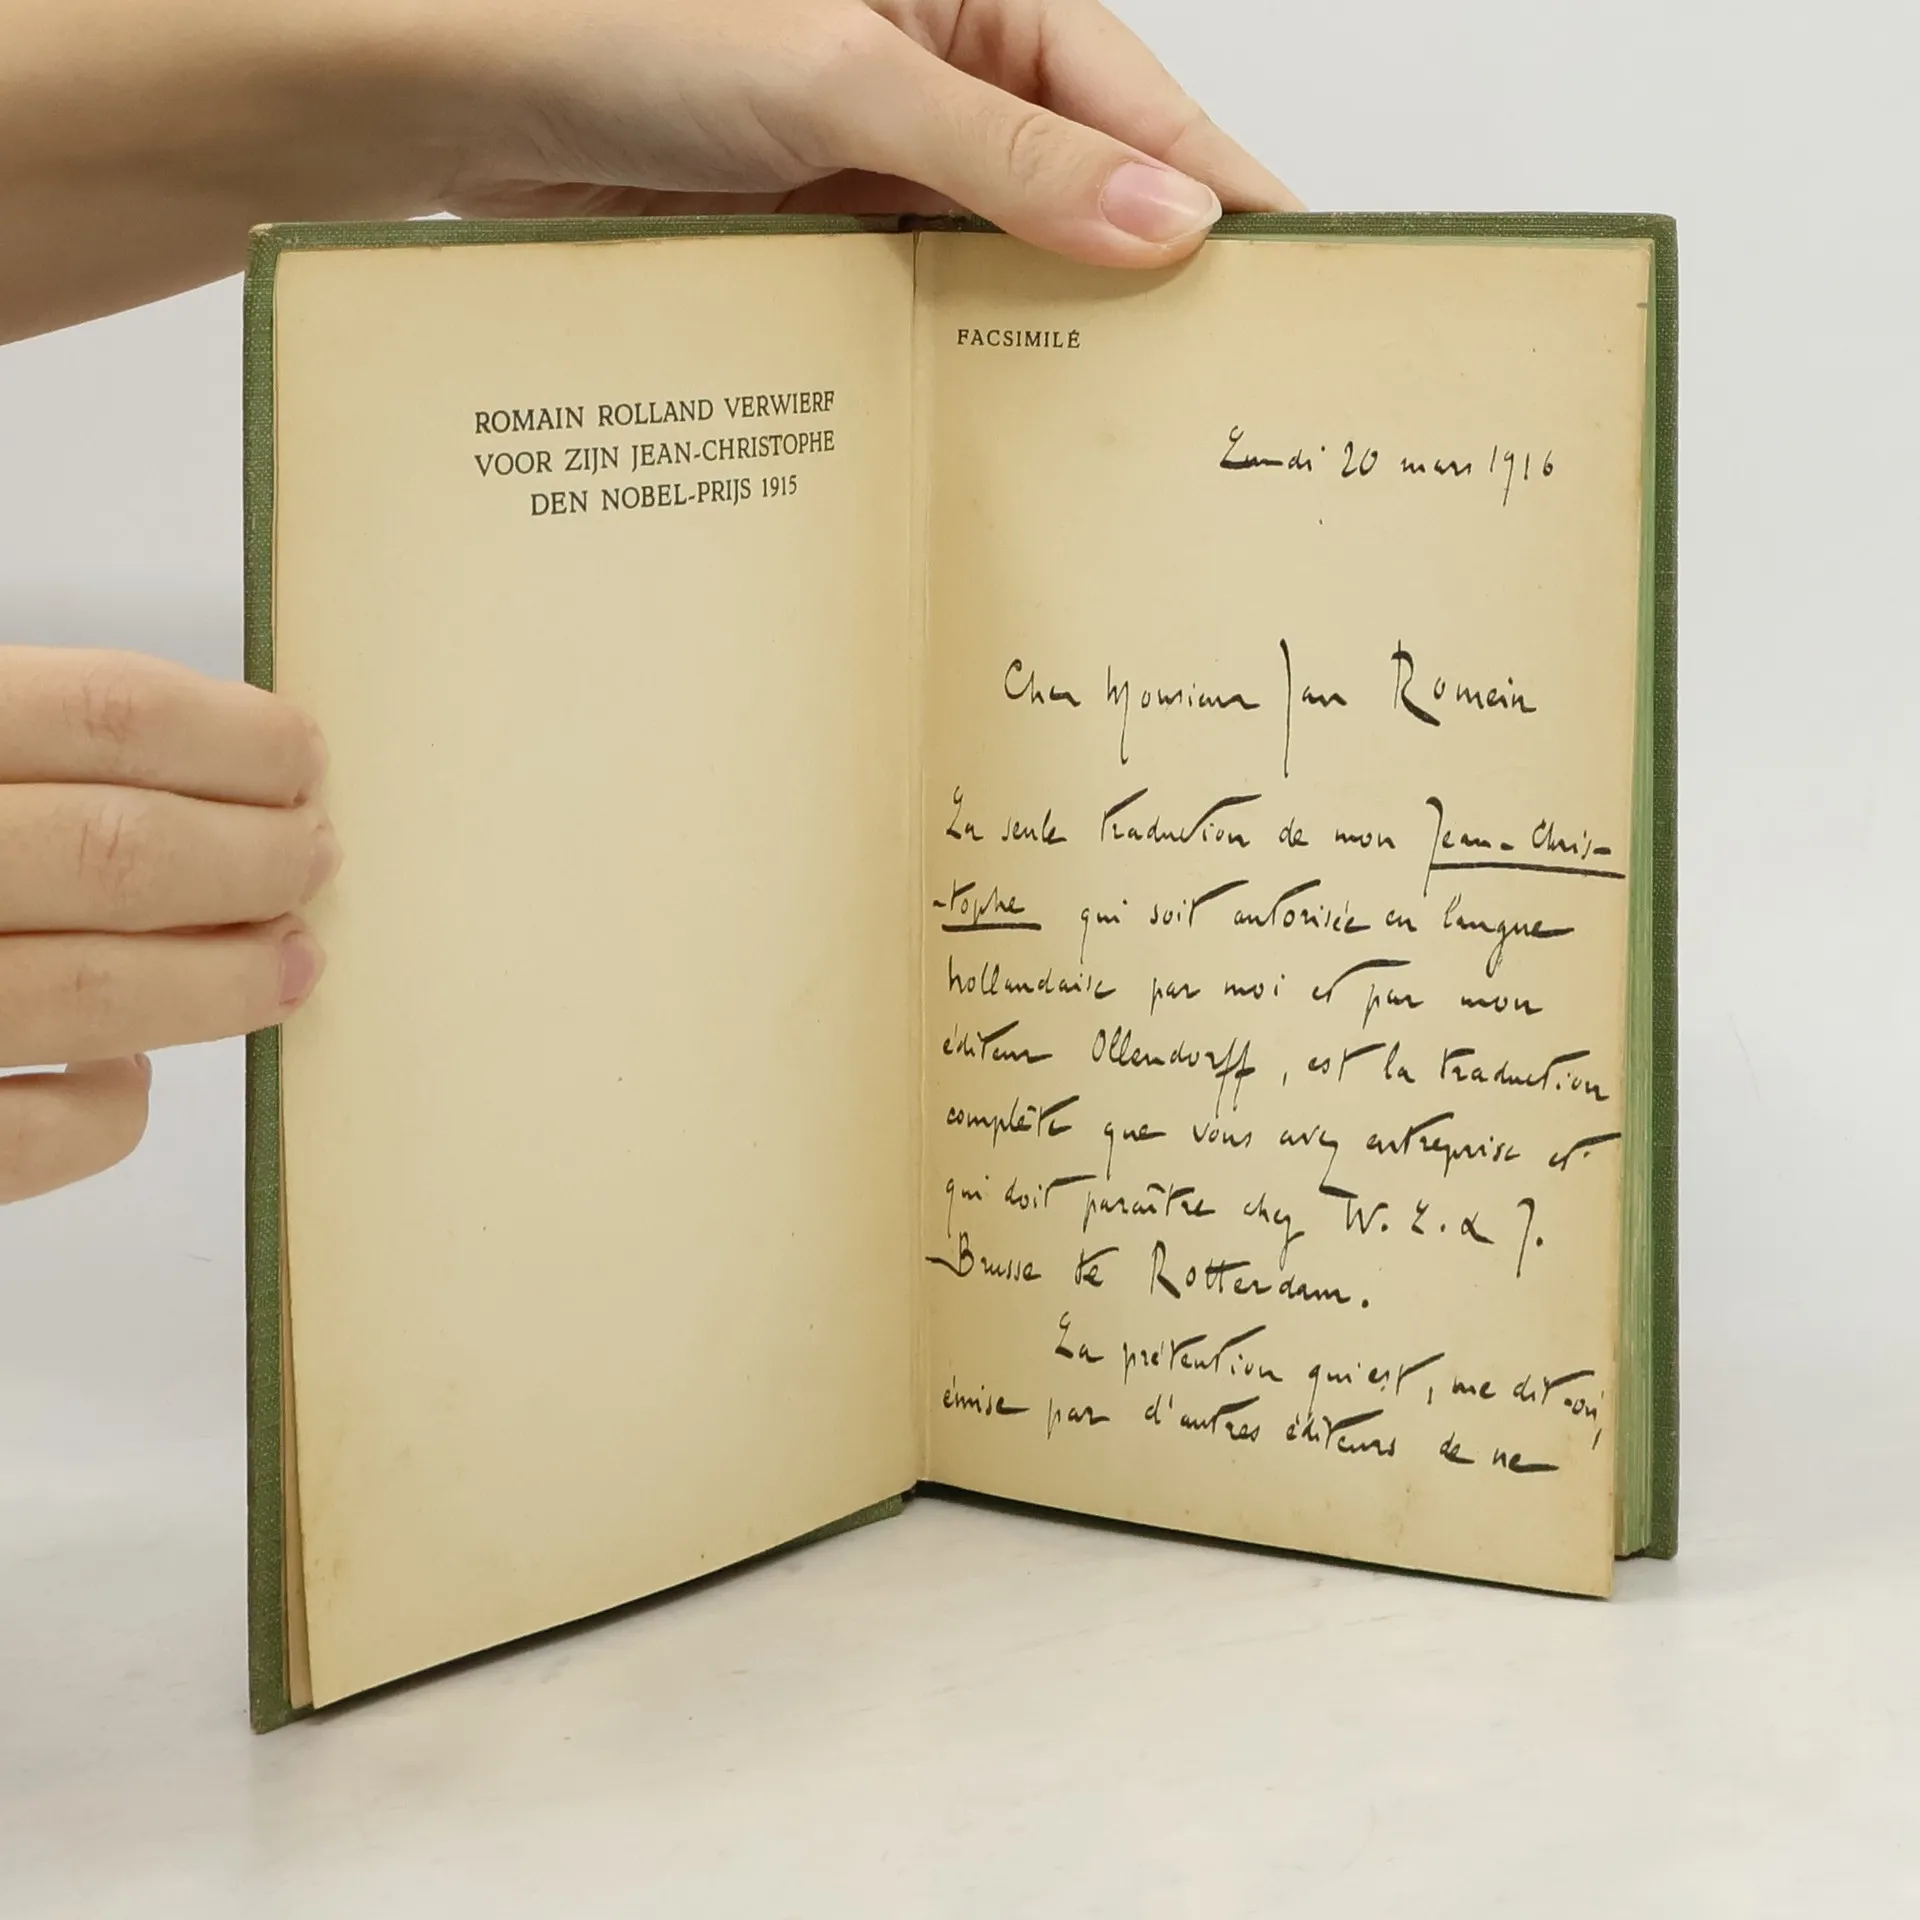 ROMAIN ROLLAND VERWIERF
VOOR ZIJN JEAN-CHRISTOPHE
DEN NOBEL-PRIJS 1915
FACSIMILÉ
Lundi 20 mars 1916
Cher Monsieur Jan Romein
La seule traduction de mon Jean-Chris-
-tophe qui soit autorisée en langue
hollandaise par moi et par mon
éditeur Ollendorff, est la traduction
complète que vous avez entreprise et
qui doit paraître chez W. L. & J.
Brusse de Rotterdam.
La prétention qui est, me dit-on,
émise par d'autres éditeurs de ne